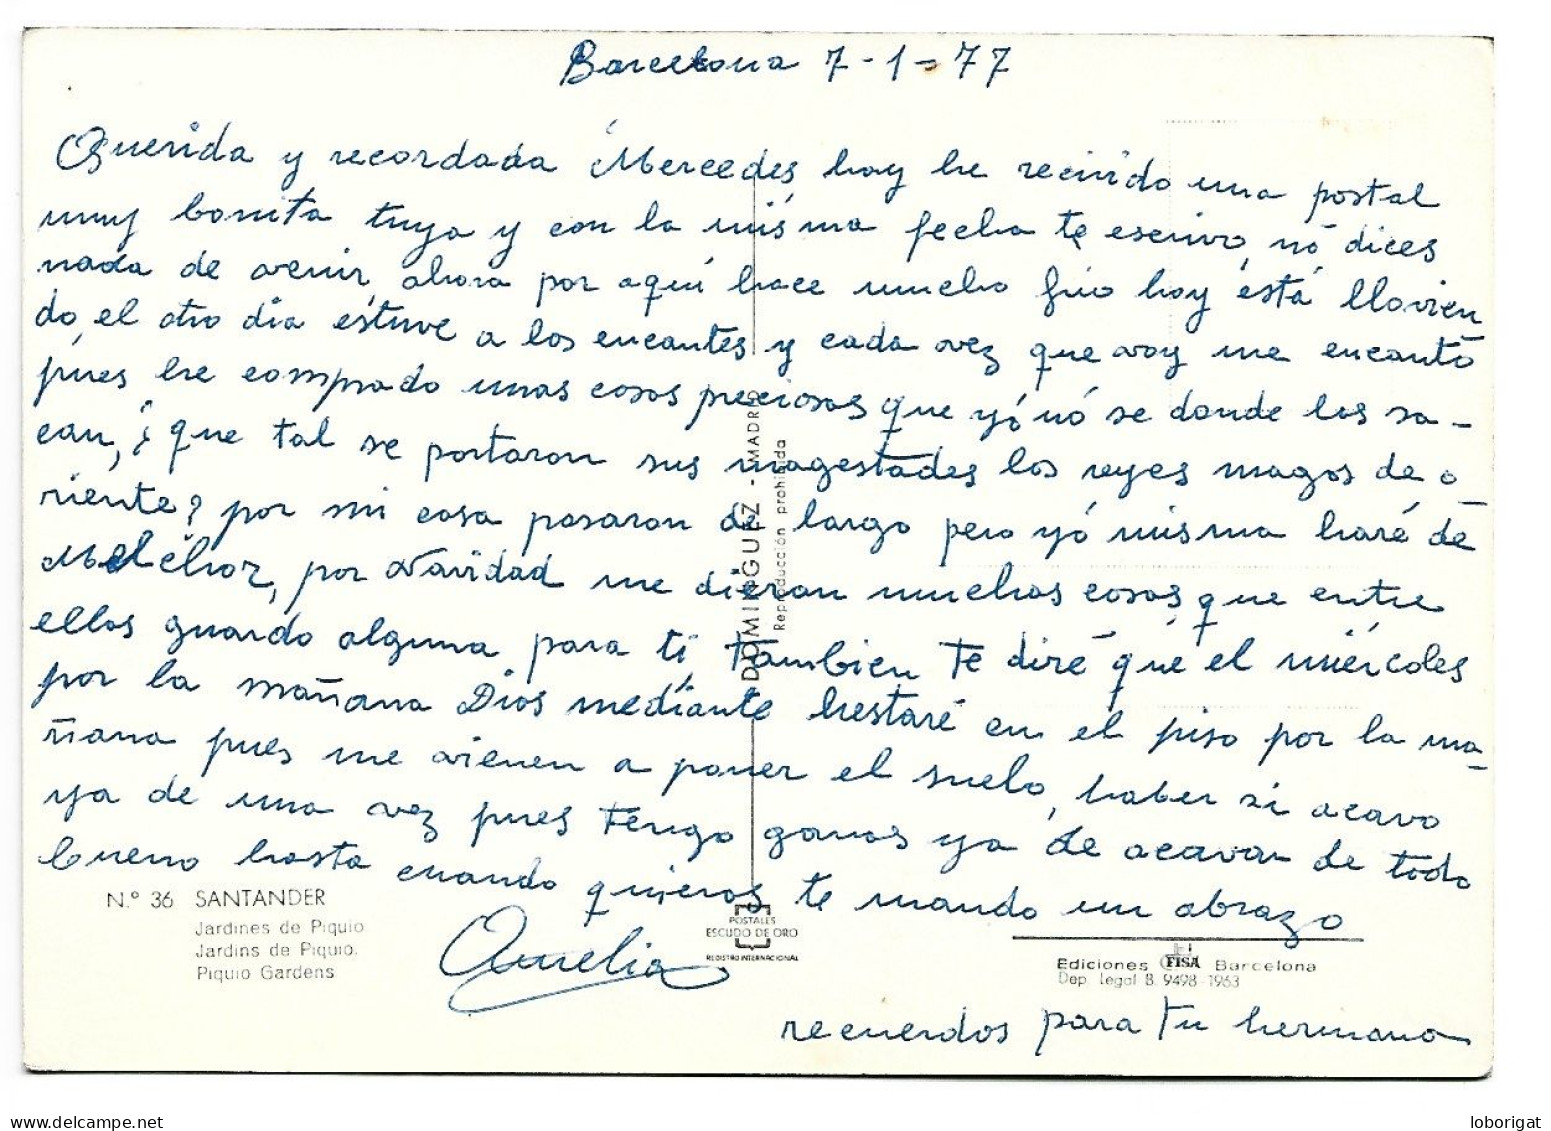 Barcelona 7-1-77
Querida y recordada Mercedes, hoy he recivido una postal
muy bonita tuya y con la misma fecha te escrivo, nó dices
nada de venir, ahora por aquí hace mucho frio hoy está llovien
do, el otro dia estuve a los encantes y cada vez que voy me encantó
pues he comprado unas cosas preciosas que yó nó se donde las sa-
can, ¿que tal se portaron sus magestades los reyes magos de o-
riente? por mi casa pasaron de largo pero yó misma haré de
Melchor, por Navidad me dieron muchas cosas, que entre
ellas guardo alguna para ti, tambien te diré que el miércoles
por la mañana Dios mediante hestaré en el piso por la ma-
ñana pues me vienen a poner el suelo, haber si acavo
ya de una vez pues tengo ganas ya de acavar de todo
bueno hasta cuando quieras te mando un abrazo
Aurelia
recuerdos para tu hermana
N.º 36 SANTANDER
Jardines de Piquio
Jardins de Piquio.
Piquio Gardens
DOMINGUEZ - MADRID
Reproducción prohibida
POSTALES
ESCUDO DE ORO
REGISTRO INTERNACIONAL
Ediciones FISA Barcelona
Dep. Legal B. 9498-1963
loborigat